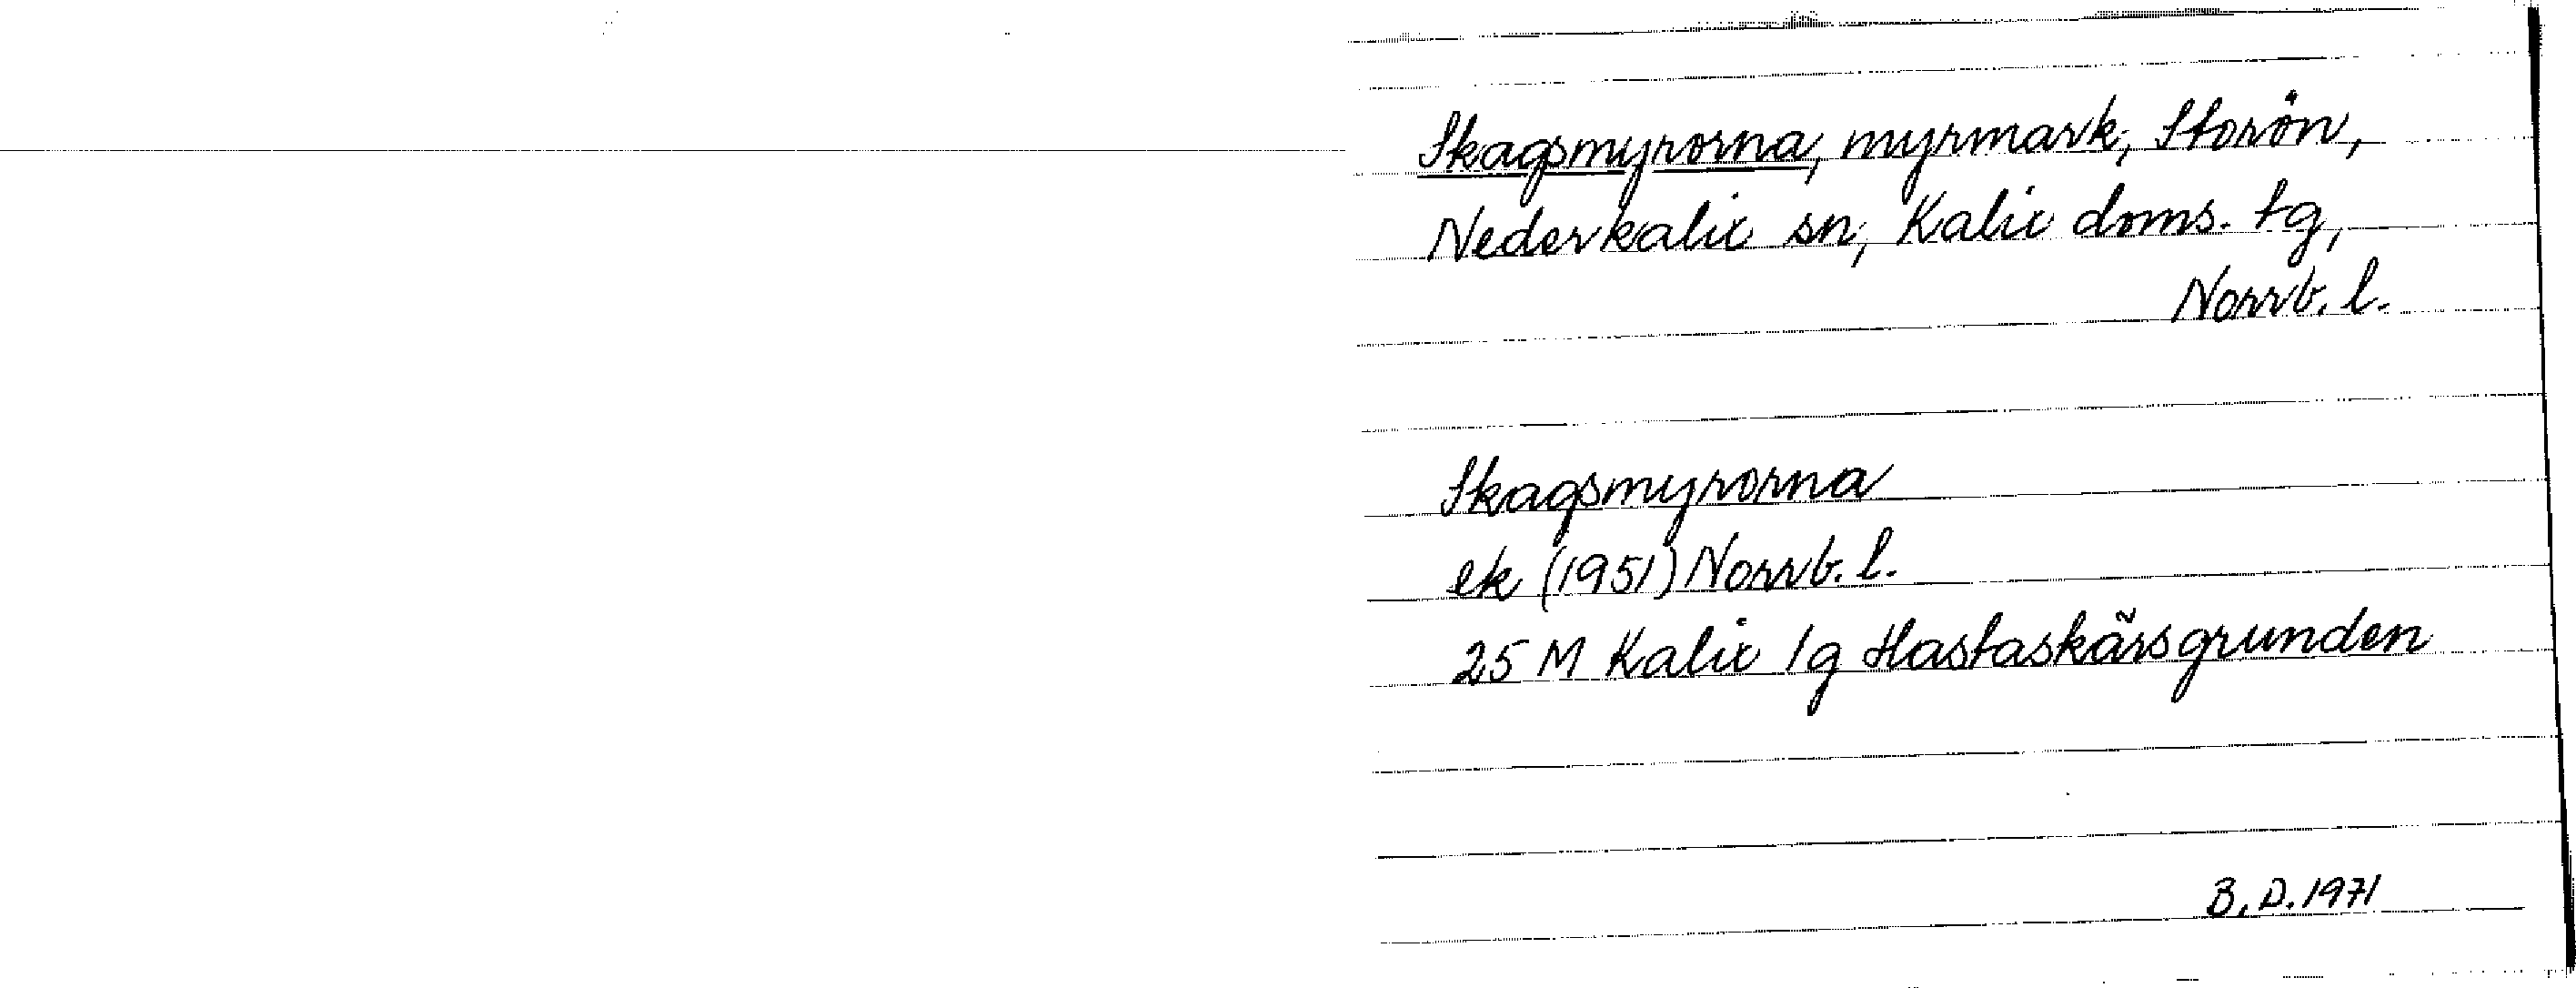 Skagsmyrorna, myrmark, Storön,
Nederkalix sn, Kalix doms. tg,
Norrb. l.
Skagsmyrorna
ek (1951) Norrb. l.
25 M Kalix /g Hastaskärsgrunden
B. D. 1971